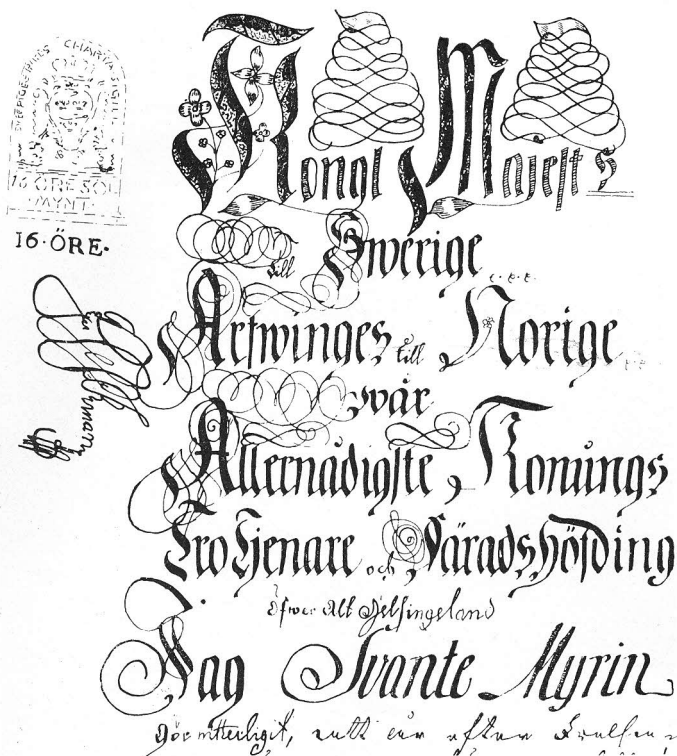 SVERIGES RIKES CHARTÆ SIGILL
16 ÖRE SÖL
MYNT
16·ÖRE·
Kongl Majestts
till Swerige
Arfwinges till Norige
wår
Allernådigste Konungs
Tro Tjenare och Häradshöfding
öfwer Alt Helsingeland
Jag Svante Myrin
Gör witterligit, att åur efter